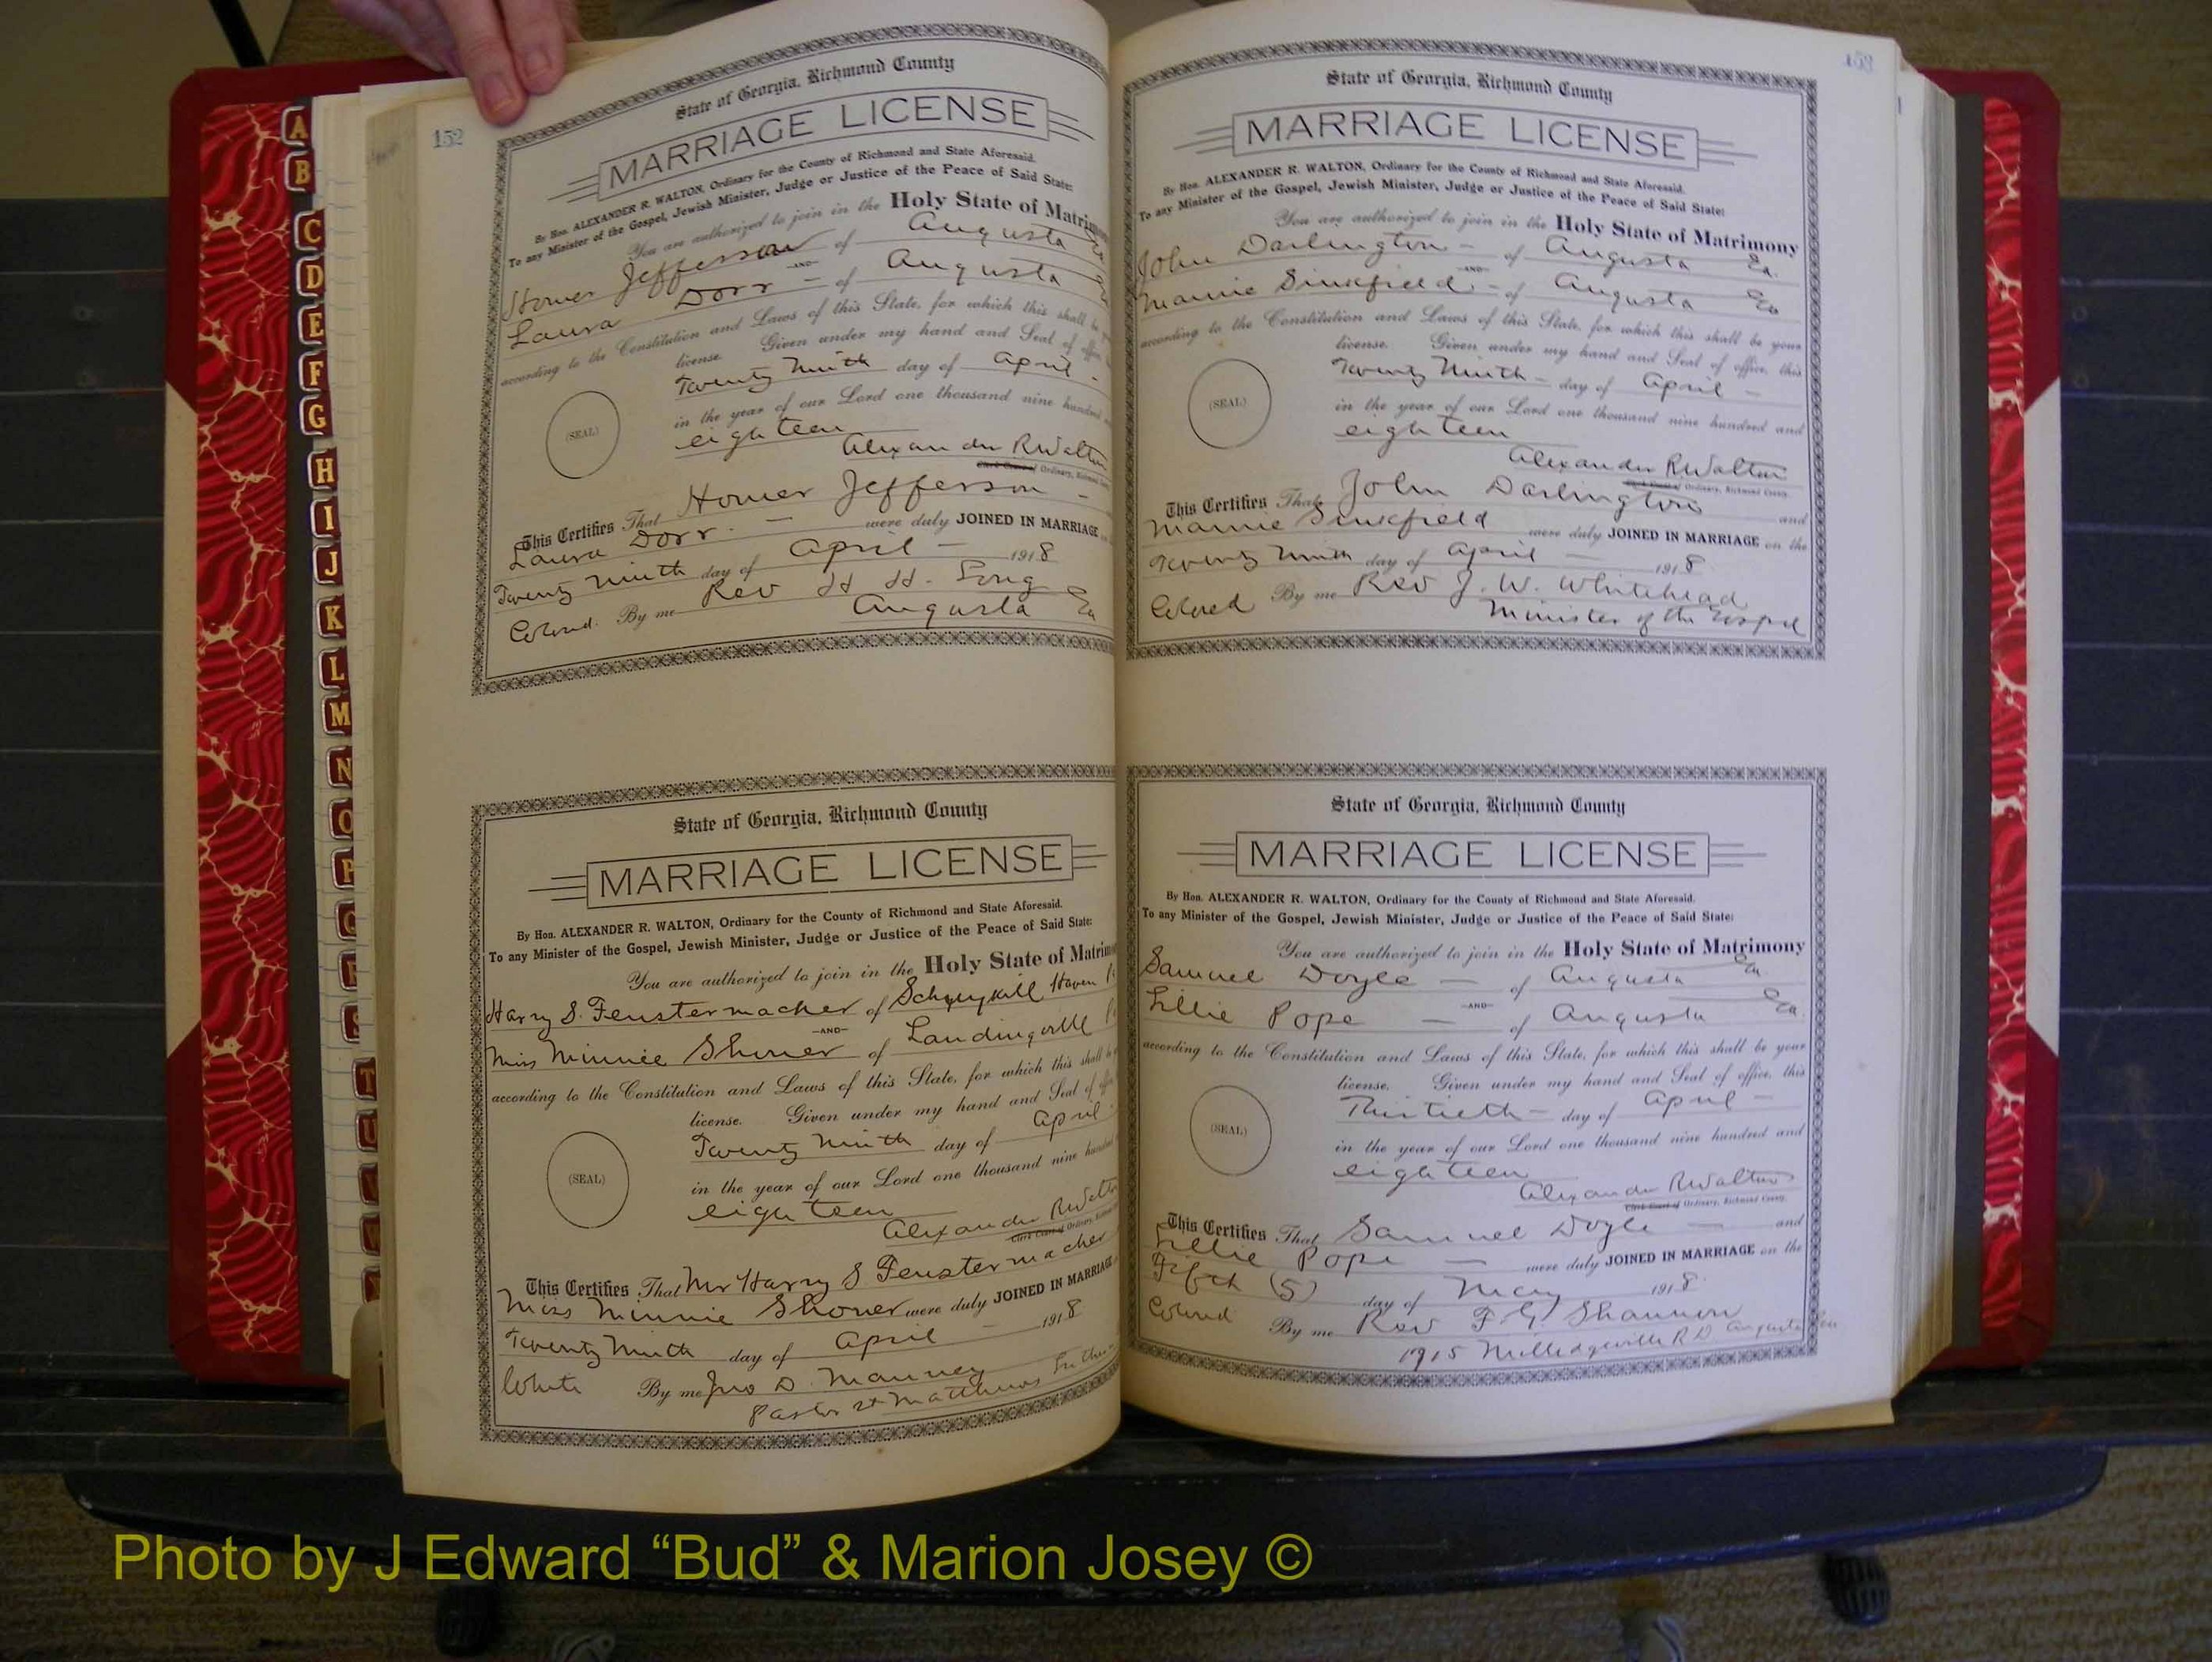 152
State of Georgia, Richmond County
MARRIAGE LICENSE
By Hon. ALEXANDER R. WALTON, Ordinary for the County of Richmond and State Aforesaid.
To any Minister of the Gospel, Jewish Minister, Judge or Justice of the Peace of Said State:
You are authorized to join in the Holy State of Matrimony
Homer Jefferson of Augusta Ga
—AND—
Laura Dorr — of Augusta Ga
according to the Constitution and Laws of this State, for which this shall be your
license. Given under my hand and Seal of office,
(SEAL)
Twenty Ninth day of April -
in the year of our Lord one thousand nine hundred
eighteen
Alexander R Walton
Clerk Court of Ordinary, Richmond County
This Certifies That Homer Jefferson -
Laura Dorr. — were duly JOINED IN MARRIAGE
Twenty Ninth day of April — 1918
Colored. By me Rev H. H. Long
Augusta Ga
State of Georgia, Richmond County
MARRIAGE LICENSE
By Hon. ALEXANDER R. WALTON, Ordinary for the County of Richmond and State Aforesaid.
To any Minister of the Gospel, Jewish Minister, Judge or Justice of the Peace of Said State:
You are authorized to join in the Holy State of Matrim
Harry S. Fenstermacher of Schuylkill Haven
—AND—
Miss Minnie Shoner of Landingville
according to the Constitution and Laws of this State, for which this shall be
license. Given under my hand and Seal of
(SEAL)
Twenty Ninth day of April
in the year of our Lord one thousand nine hundred
eighteen
Alexander R Walton
Clerk Court of Ordinary, Richmond
This Certifies That Mr Harry S Fenstermacher
Miss Minnie Shoner were duly JOINED IN MARRIAGE
Twenty Ninth day of April — 1918
White By me Jno D. Mauney
Pastor St Matthews Luthe
153
State of Georgia, Richmond County
MARRIAGE LICENSE
By Hon. ALEXANDER R. WALTON, Ordinary for the County of Richmond and State Aforesaid.
To any Minister of the Gospel, Jewish Minister, Judge or Justice of the Peace of Said State:
You are authorized to join in the Holy State of Matrimony
John Darlington — of Augusta Ga.
—AND—
Mamie Sinkfield - of Augusta Ga
according to the Constitution and Laws of this State, for which this shall be your
license. Given under my hand and Seal of office, this
(SEAL)
Twenty Ninth — day of April —
in the year of our Lord one thousand nine hundred and
eighteen
Alexander R Walton
Clerk Court of Ordinary, Richmond County.
This Certifies That John Darlington and
Mamie Sinkfield were duly JOINED IN MARRIAGE on the
Twenty Ninth day of April — 1918.
Colored By me Rev J. W. Whitehead
Minister of the Gospel
State of Georgia, Richmond County
MARRIAGE LICENSE
By Hon. ALEXANDER R. WALTON, Ordinary for the County of Richmond and State Aforesaid.
To any Minister of the Gospel, Jewish Minister, Judge or Justice of the Peace of Said State:
You are authorized to join in the Holy State of Matrimony
Samuel Doyle — of Augusta Ga
—AND—
Lillie Pope — of Augusta Ga.
according to the Constitution and Laws of this State, for which this shall be your
license. Given under my hand and Seal of office, this
(SEAL)
Thirtieth — day of April —
in the year of our Lord one thousand nine hundred and
eighteen
Alexander R Walton
Clerk Court of Ordinary, Richmond County.
This Certifies That Samuel Doyle — and
Lillie Pope — were duly JOINED IN MARRIAGE on the
Fifth (5) day of May 1918.
Colored By me Rev F. G. Shannon
1915 Milledgeville R D Augusta Ga
A
B
C
D
E
F
G
H
I
J
K
L
M
N
O
P
Q
R
S
T
U
V
W
Photo by J Edward “Bud” & Marion Josey ©